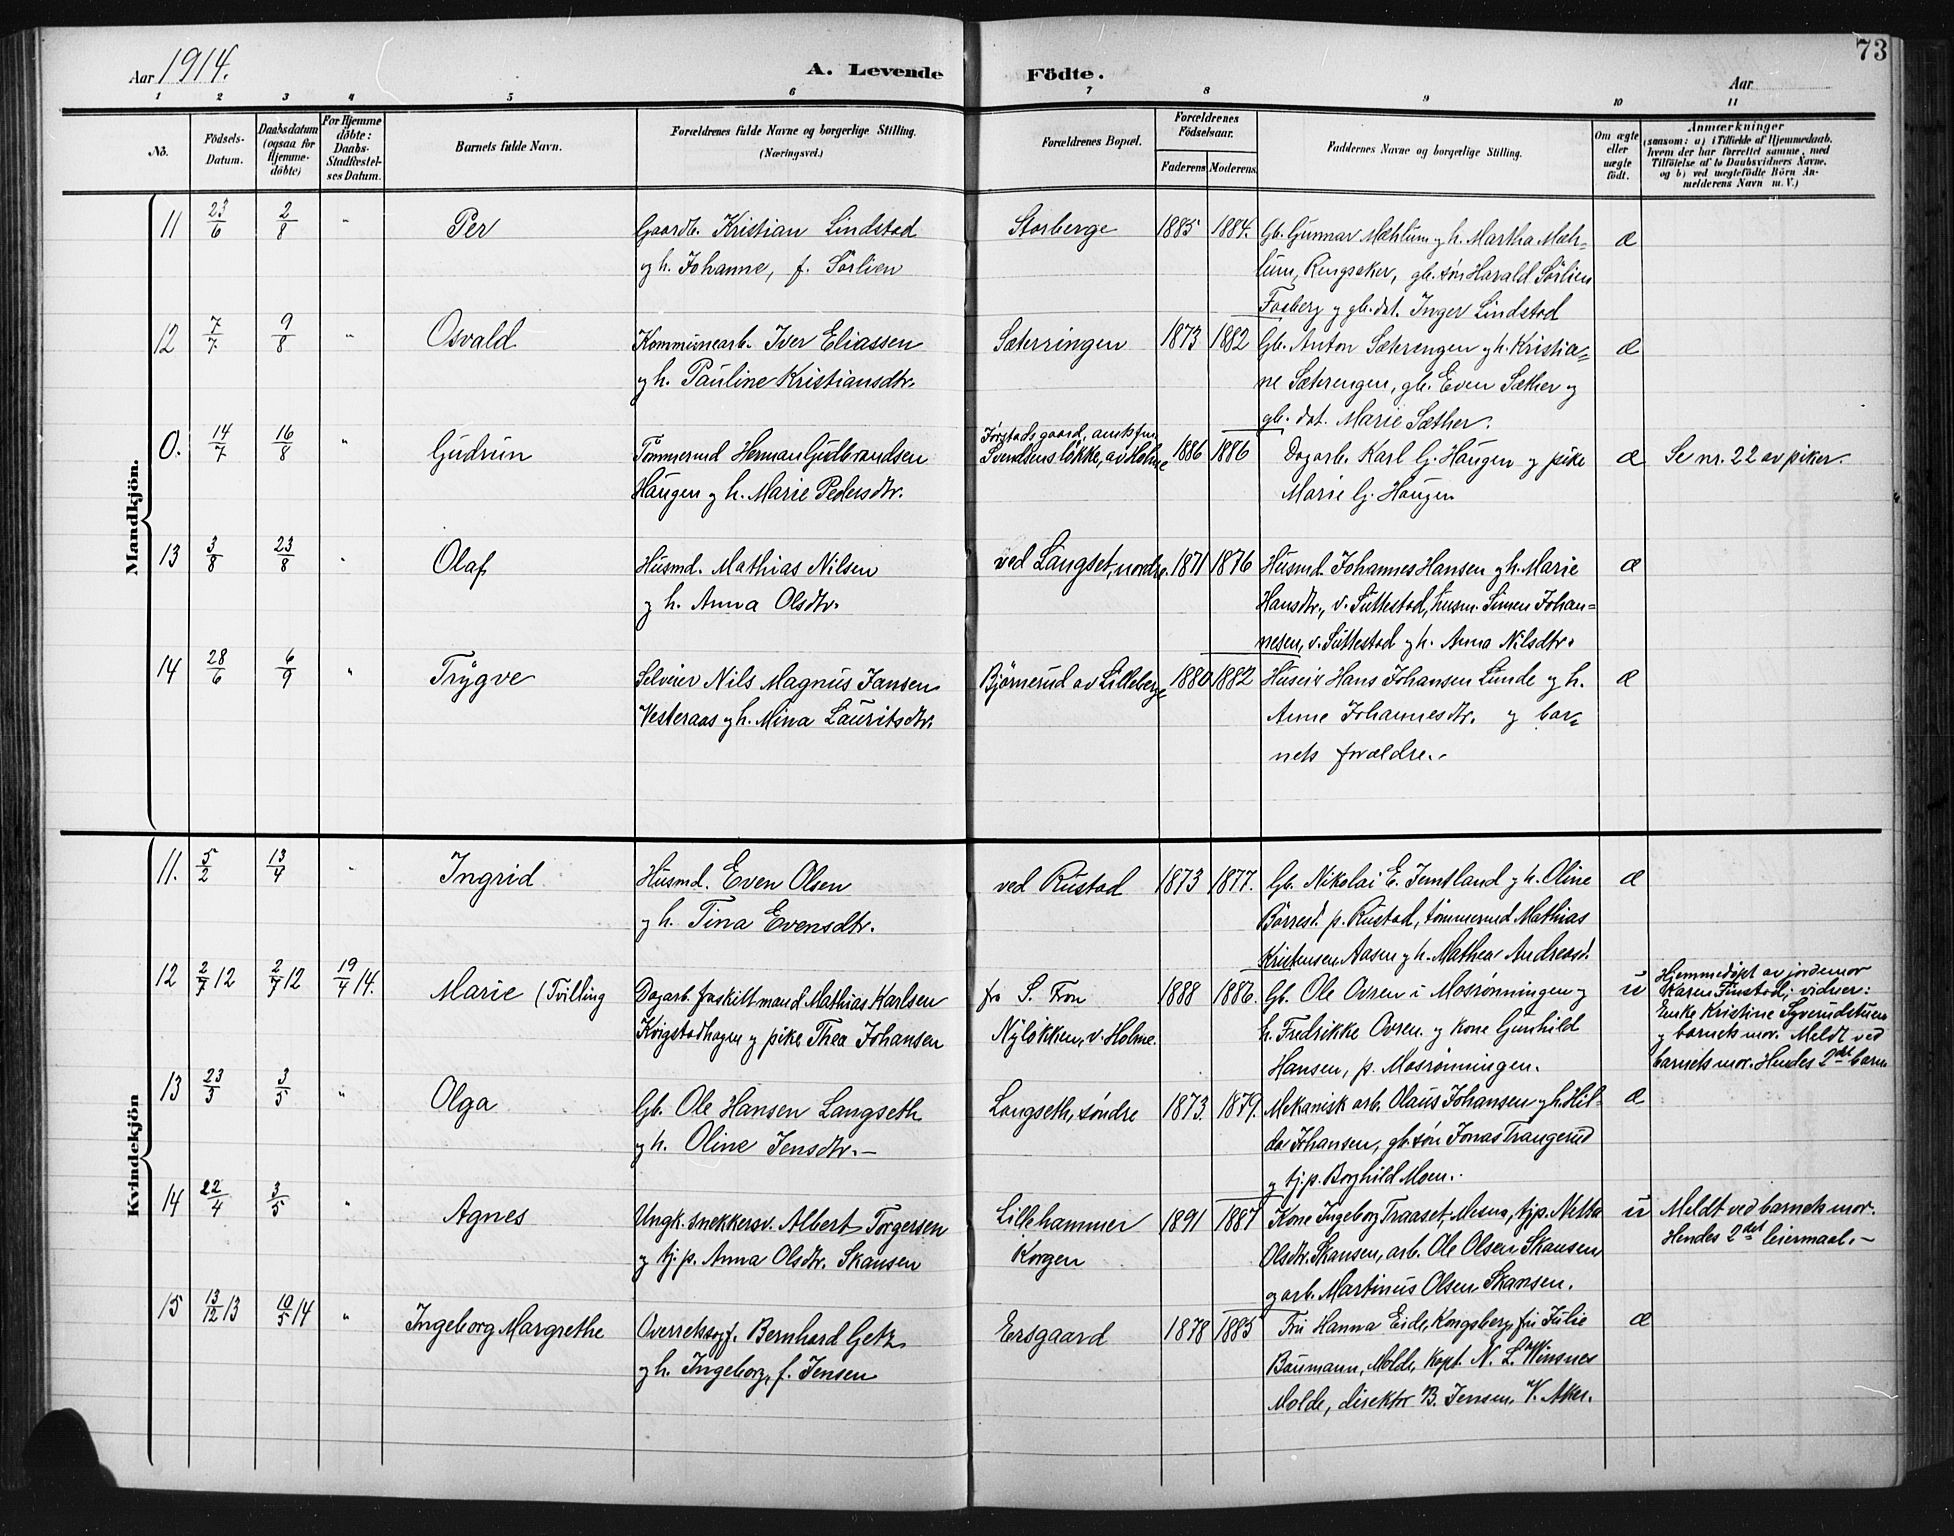 73
Aar 1914.
A. Levende Födte.
Aar
1 2 3 4 5 6 7 8 9 10 11
No.
Födsels-
Datum.
Daabsdatum
(ogsaa for
Hjemme-
döbte)
For Hjemme
döbte:
Daabs-
Stadfæstel-
ses Datum.
Barnets fulde Navn.
Forældrenes fulde Navne og borgerlige Stilling.
(Næringsvei.)
Forældrenes Bopæl.
Forældrenes
Födselsaar.
Faderens Moderens
Faddernes Navne og borgerlige Stilling.
Om ægte
eller
uægte
födt.
Anmærkninger
(saasom: a) i Tilfælde af Hjemmedaab.
hvem der har forrettet samme, med
Tilföielse af to Daabsvidners Navne.
og b) ved uegtefödte Börn An-
melderens Navn m. V.)
Mandkjön.
11 23/6 2/8 " Per
Gaardb. Kristian Lindstad
og h. Johanne, f. Sørlien
Storberge 1885 1884.
Gb. Gunnar Mæhlum og h. Martha Mæh-
lum, Ringsaker, gb. søn Harald Sørlien
Faaberg og gb. dat. Inger Lindstad
æ
12 7/7 9/8 " Osvald
Kommunearb. Iver Eliassen
og h. Pauline Kristiansdtr.
Sæterringen 1873 1882
Gb. Anton Sæterengen og h. Kristia-
ne Sæterengen, gb. Even Sæther og
gb. dat. Marie Sæther.
æ
0. 14/7 16/8 " Gudrun
Tømmermd Herman Gudbrandsen
Haugen og h. Marie Pedersdtr.
Jørstads gaard, amtsfm.
Svendsens løkke, av Holme
1886 1886
Dagarb. Karl G. Haugen og pike
Marie G. Haugen
æ
Se nr. 22 av piker.
13 3/8 23/8 " Olaf
Husmd. Mathias Nilsen
og h. Anna Olsdtr.
ved Langset, nordre. 1871 1876
Husmd. Johannes Hansen og h. Marie
Hansdtr., v. Suttestad, husm. Simen Johan-
nesen, v. Suttestad og h. Anna Nilsdtr.
æ
14 28/6 6/9 " Trygve
Selveier Nils Magnus Jansen
Vesteraas og h. Mina Lauritsdtr.
Bjørnerud av Lilleberge 1880 1882
Huseier Hans Johansen Lunde og h.
Anne Johannesdtr. og bar-
nets forældre.
æ
Kvindekjön
11. 5/2 13/4 " Ingrid
Husmd. Even Olsen
og h. Tina Evensdtr.
ved Rustad 1873 1877.
Gb. Nikolai E. Jemtland og h. Oline
Børresd. p. Rustad, tømmermd Mathias
Kristensen Aasen og h. Mathea Andreasd.
æ
12 2/7 12 2/7 12 19/4 14. Marie (Tvilling
Dagarb. fraskilt mand Mathias Karlsen
Kvigstadhagen og pike Thea Johansen
fra S. Fron
Nyløkken, v. Holme.
1888 1886.
Gb. Ole Ovren i Mosrønningen og
h. Fredrikke Ovren og kone Gunhild
Hansen, p. Mosrønningen.
u
Hjemmedøpt av jordemor
Karen Finstad; vidner:
Enke Kristine Syverudstuen
og barnets mor. Meldt ved
barnets mor. Hendes 2det barn
13 23/3 3/5 " Olga
Gb. Ole Hansen Langseth
og h. Oline Jensdtr.-
Langseth, søndre 1873. 1879.
Mekanisk arb. Olaus Johansen og h. Hil-
da Johansen, gb. søn Jonas Trangerud
og tj.p. Borghild Moen.
æ
14 22/4 3/5 " Agnes
Ungk. snekkersv. Albert Torgersen
og tj.p. Anna Olsdtr. Skansen
Lillehammer
Korgen
1891 1887
Kone Ingeborg Traaset, Mesna, tj.p. Netha
Olsdtr. Skansen, arb. Ole Olsen Skansen
og arb. Martinus Olsen Skansen.
u
Meldt ved barnets mor.
Hendes 2det leiermaal.-
15 13/12 13 10/5 14 " Ingeborg Margrethe
Overretssagf. Bernhard Getz
og h. Ingeborg, f. Jensen
Ersgaard 1878 1885
Fru Hanna Eide, Kongsberg, fru Julie
Baumann, Molde, kapt. N. L. Winsnes
Molde, direktør B. Jensen, V. Aker.
æ